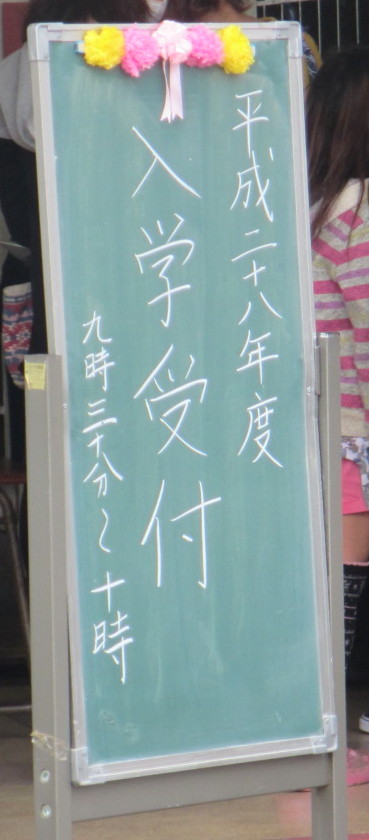 平成二十八年度
入学受付
九時三十分～十時